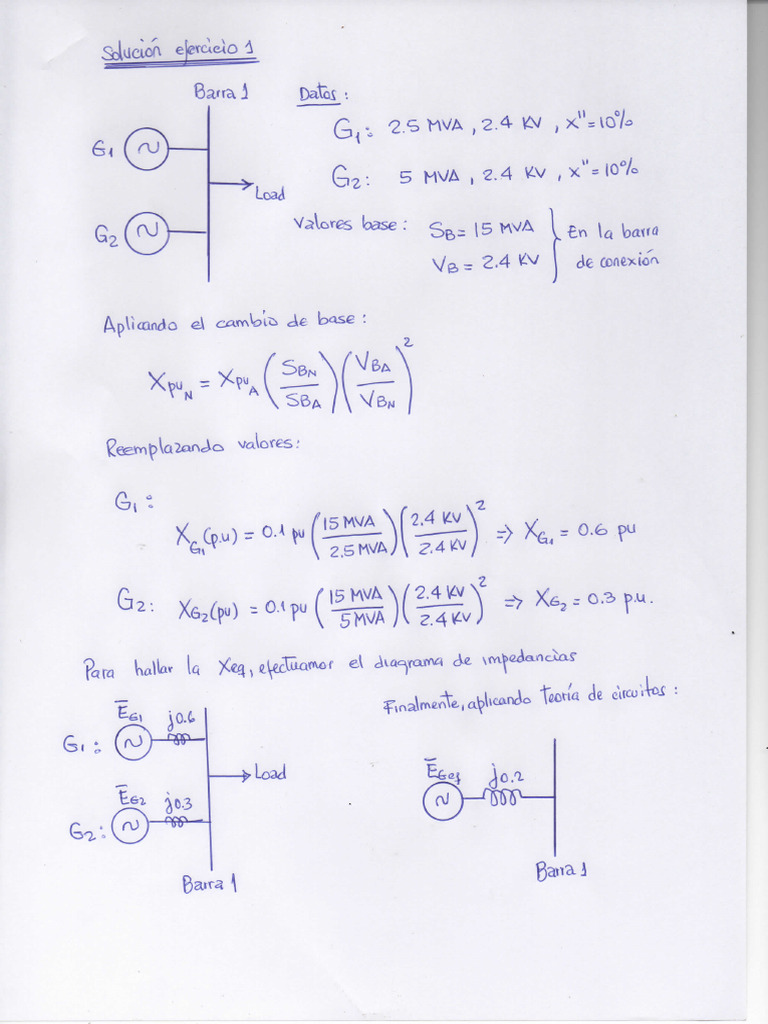 Solución ejercicio 1
Barra 1
G1
G2
Load
Datos:
G1: 2.5 MVA, 2.4 KV, x"=10%
G2: 5 MVA, 2.4 KV, x"=10%
Valores base: SB = 15 MVA
VB = 2.4 KV
} En la barra
de conexión
Aplicando el cambio de base:
XpuN = XpuA (SBN/SBA)(VBA/VBN)²
Reemplazando valores:
G1:
XG1(p.u) = 0.1 pu (15 MVA/2.5 MVA)(2.4 KV/2.4 KV)² => XG1 = 0.6 pu
G2: XG2(pu) = 0.1 pu (15 MVA/5 MVA)(2.4 KV/2.4 KV)² => XG2 = 0.3 p.u.
Para hallar la Xeq, efectuamor el diagrama de impedancias
Finalmente, aplicando teoría de circuitos:
G1:
ĒG1
j0.6
Load
G2:
ĒG2
j0.3
Barra 1
ĒGeq
j0.2
Barra 1